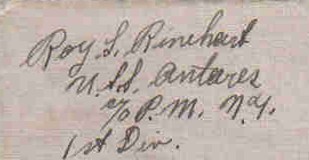 Roy L. Rinehart
U.S.S. Antares
℅ P.M. N.Y.
1st Div.